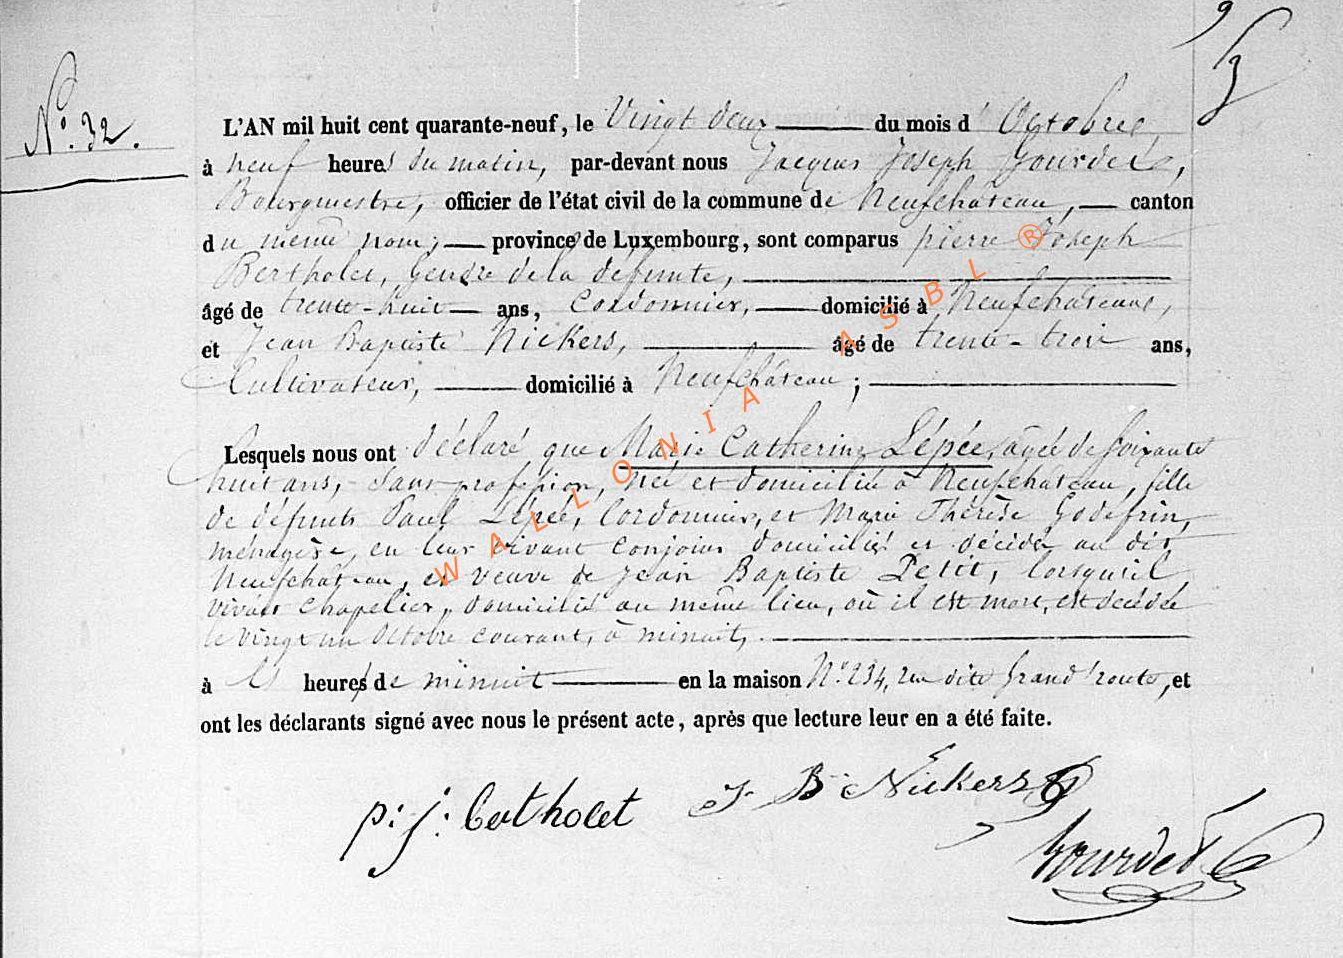 N.° 32.
L'AN mil huit cent quarante-neuf, le Vingt deux du mois d'Octobre,
à neuf heures du matin, par-devant nous Jacques Joseph Gourdet,
Bourgmestre, officier de l'état civil de la commune de Neufchâteau, canton
du même nom, province de Luxembourg, sont comparus pierre Joseph
Bertholet, Gendre de la défunte,
âgé de trente-huit ans, Cordonnier, domicilié à Neufchâteau,
et Jean Baptiste Nickers, âgé de trente-trois ans,
Cultivateur, domicilié à Neufchâteau;
Lesquels nous ont déclaré que Marie Catherine Lépée, agée de Soixante
huit ans, Sans profession, née et domiciliée à Neufchâteau, fille
de défunts Paul Lépée, Cordonnier, et Marie Thérèse Godefrin,
ménagère, en leur vivant conjoins domiciliés et décédés au dit
Neufchâteau, et veuve de Jean Baptiste Petit, lorsqu'il
vivait chapelier, domicilié au même lieu, où il est mort, est décédée
le vingt un Octobre courant, à minuit,
à heures de minuit en la maison N.° 234, rue dite Grand'route, et
ont les déclarants signé avec nous le présent acte, après que lecture leur en a été faite.
p: j: bertholet J. B. Nickers
Gourdet
WALLONIA ASBL ®